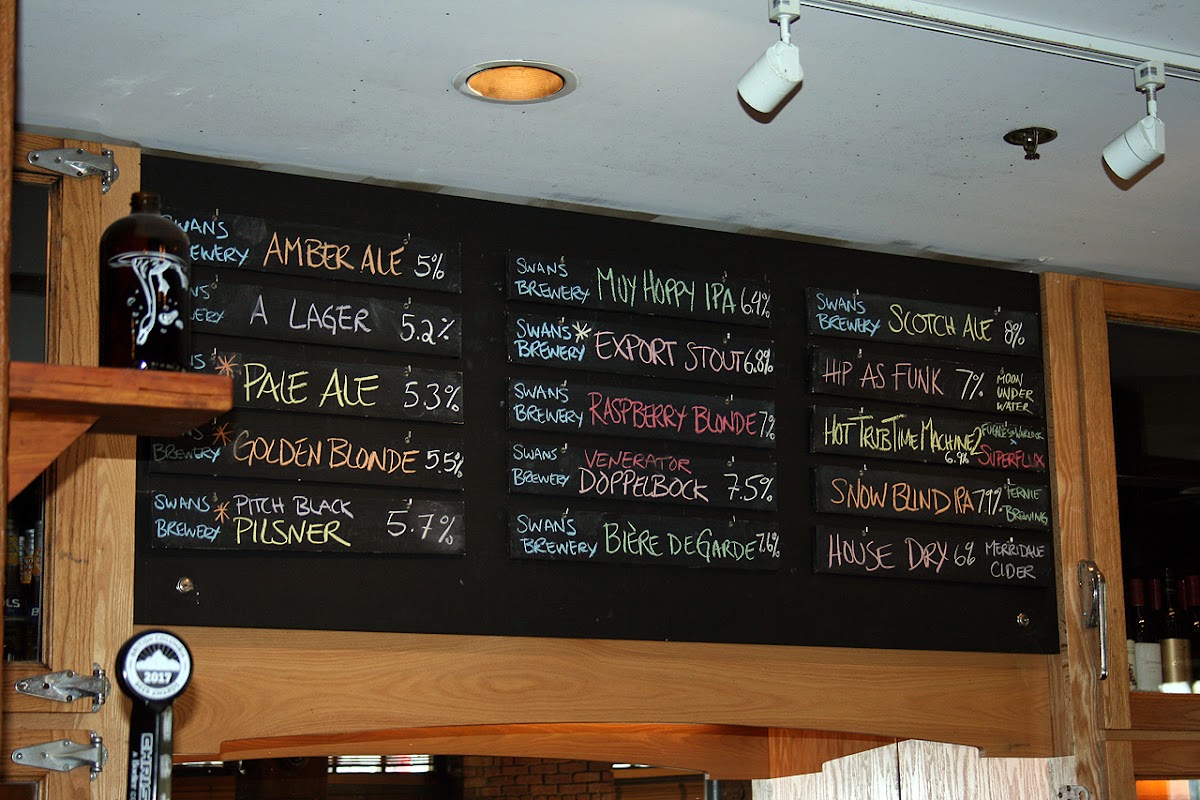 SWANS
BREWERY AMBER ALE 5%
A LAGER 5.2%
* PALE ALE 5.3%
BREWERY * GOLDEN BLONDE 5.5%
SWANS
BREWERY * PITCH BLACK
PILSNER 5.7%
SWAN'S
BREWERY MUY HOPPY IPA 6.4%
SWANS
BREWERY * EXPORT STOUT 6.8%
SWAN'S
BREWERY RASPBERRY BLONDE 7%
SWAN'S
BREWERY VENERATOR
DOPPELBOCK 7.5%
SWAN'S
BREWERY BIÈRE DE GARDE 7.6%
SWAN'S
BREWERY SCOTCH ALE 8%
HIP AS FUNK 7% MOON
UNDER
WATER
HOT TRUB TIME MACHINE 2
6.9% SUPERFLUX
SNOW BLIND IPA 7.9% FERNIE
BREWING
HOUSE DRY 6% MERRIDALE
CIDER
2017